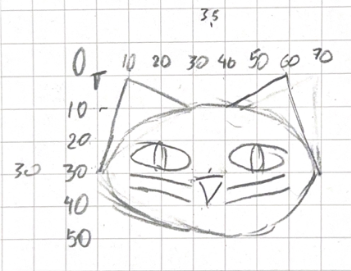 35
0 10 20 30 40 50 60 70
10
20
30 30
40
50